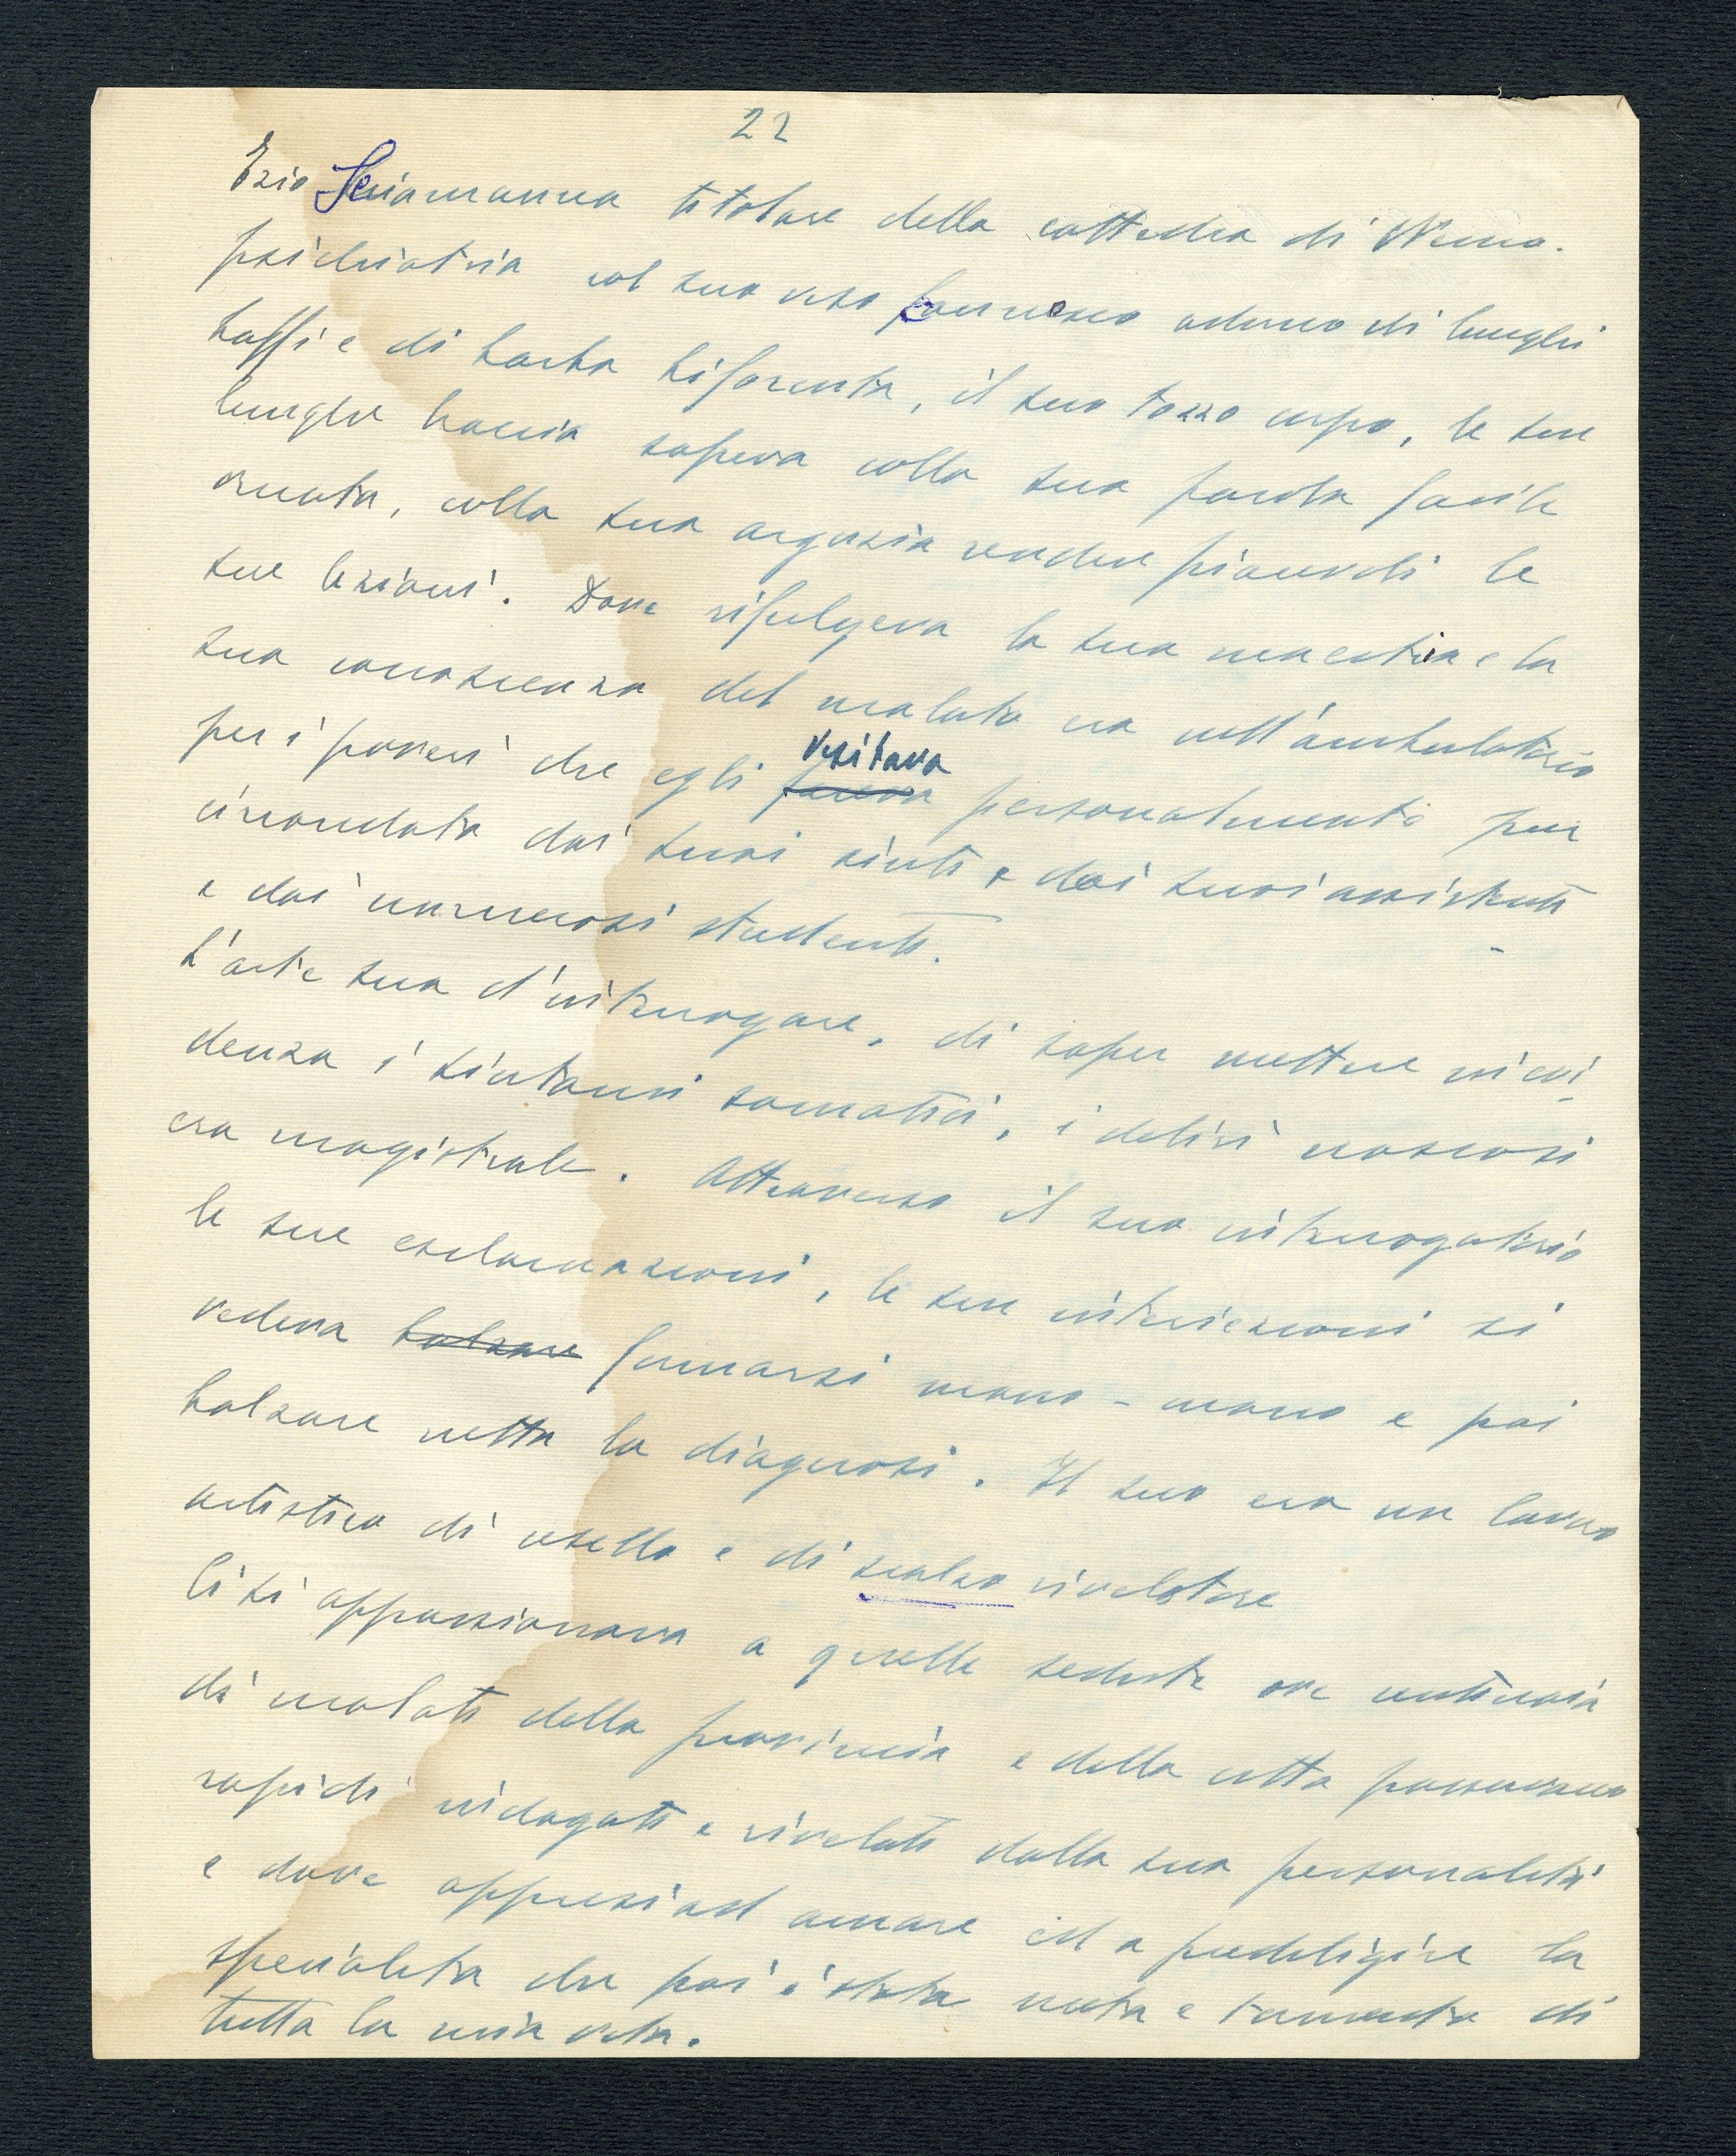 22
Ezio Sciamanna titolare della cattedra di Neuro-
psichiatria col suo viso faunesco adorno di lunghi
baffi e di barba biforcuta, il suo tozzo corpo, le sue
lunghe braccia sapeva colla sua parola facile
ornata, colla sua arguzia rendere piacevoli le
sue lezioni. Dove rifulgeva la sua maestria e la
sua conoscenza del malato era nell'ambulatorio
per i poveri che egli visitava personalmente pur
circondato dai suoi aiuti e dai suoi assistenti
e dai numerosi studenti.
L'arte sua d'interrogare, di saper mettere in evi-
denza i sintomi somatici, i deliri nascosi
era magistrale. Attraverso il suo interrogatorio
le sue esclamazioni, le sue interiezioni si
vedeva balzare formarsi mano-mano e poi
balzare netta la diagnosi. Il suo era un lavoro
artistico di cesello e di scalzo rivelatore
Ci si appassionava a quelle sedute ove centinaia
di malati della provincia e della città passavano
rapidi indagati e rivelati dalla sua personalità
e dove appresi ad amare ed a prediligere la
specialità che poi è stata meta e tormento di
tutta la mia vita.